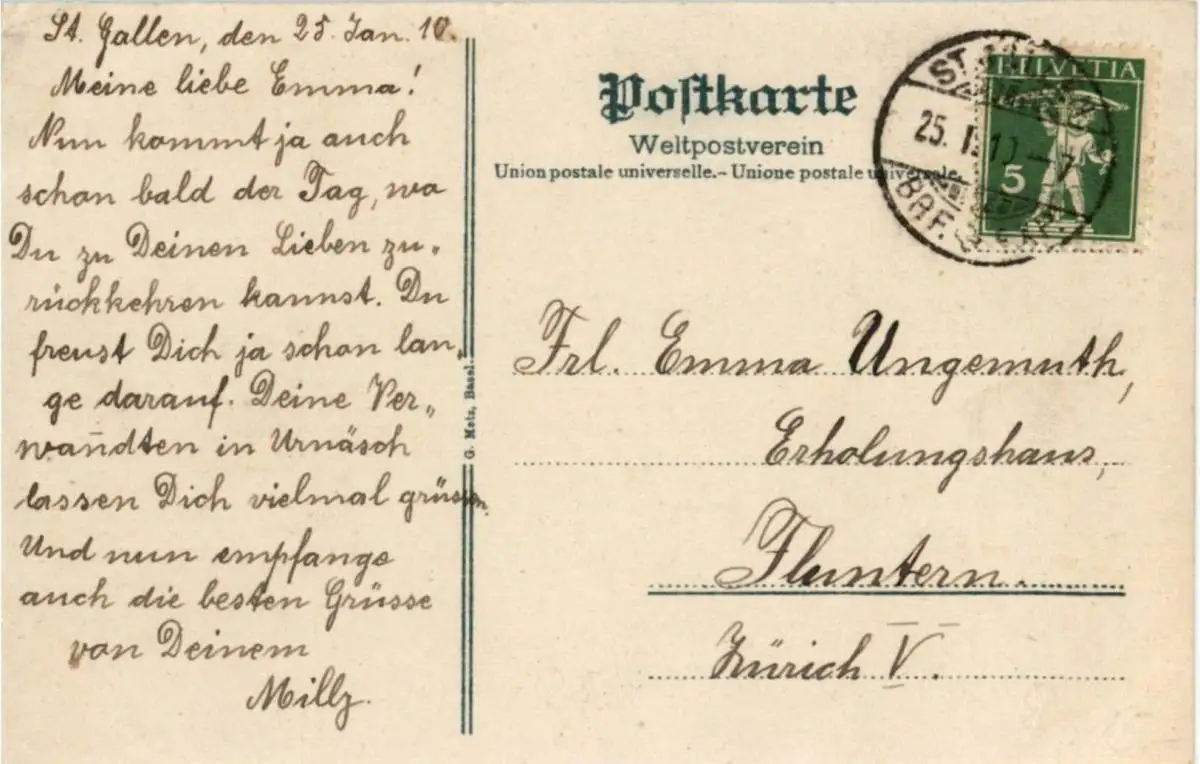 St. Gallen, den 25. Jan. 10.
Meine liebe Emma!
Nun kommt ja auch
schon bald der Tag, wo
Du zu Deinen Lieben zu„
rückkehren kannst. Du
freust Dich ja schon lan„
ge darauf. Deine Ver„
wandten in Urnäsch
lassen Dich vielmal grüssen.
Und nun empfange
auch die besten Grüsse
von Deinem
G. Metz, Basel.
Postkarte
Weltpostverein
Union postale universelle.- Unione postale universale.
HELVETIA
5
ST.
25. I. 10 - 7
BRF.
Frl. Emma Ungemuth,
Erholungshaus,
Fluntern.
Zürich V.